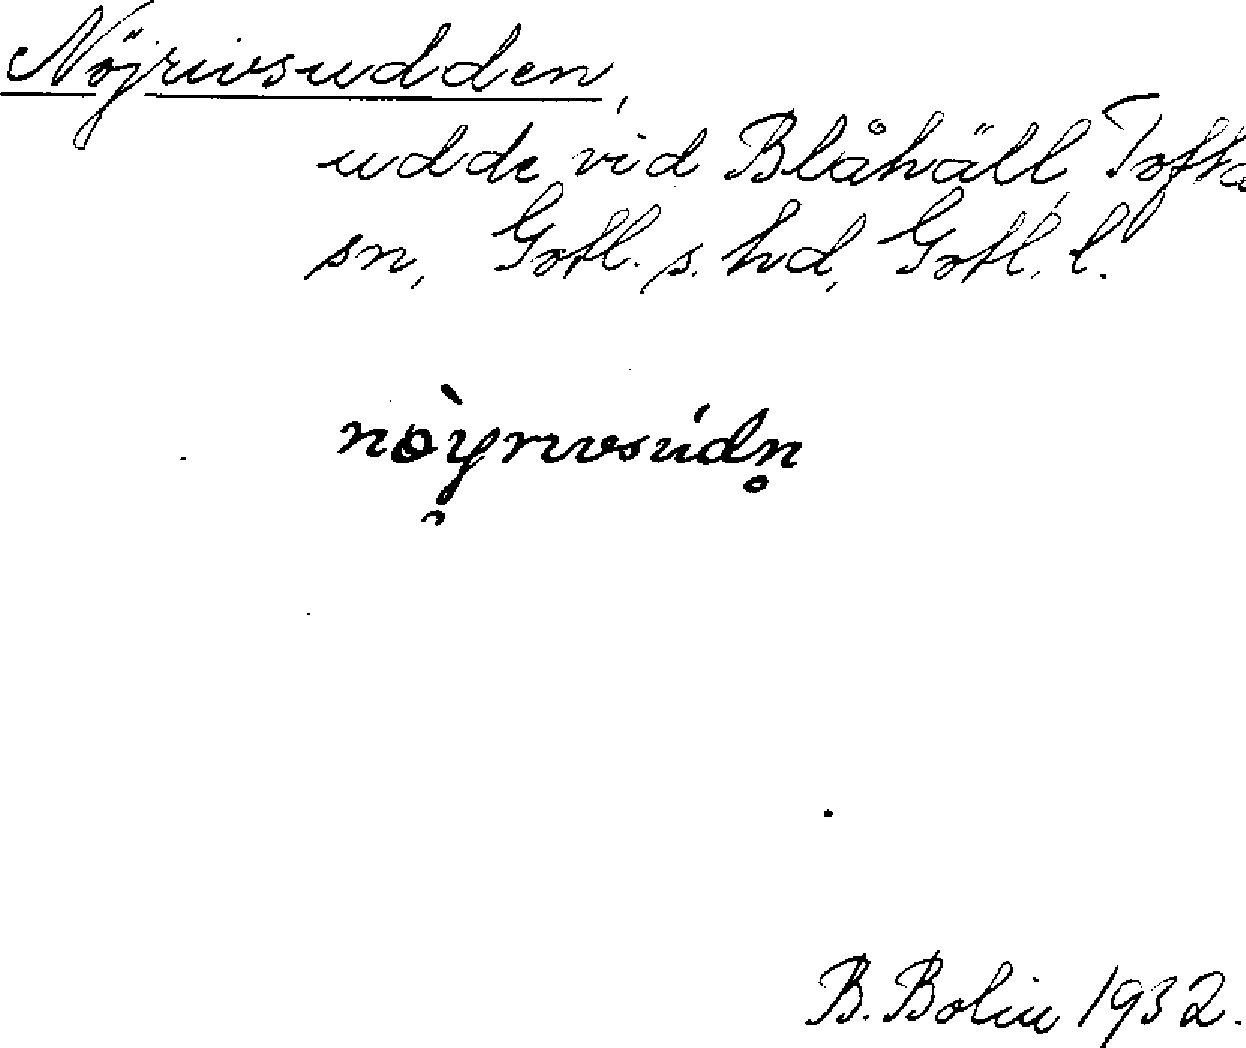 Nöjrivsudden,
udde vid Blåhäll, Tofta
sn, Gotl. s. hd, Gotl. l.
nòyrivsúdn̥
B. Bolin 1932.